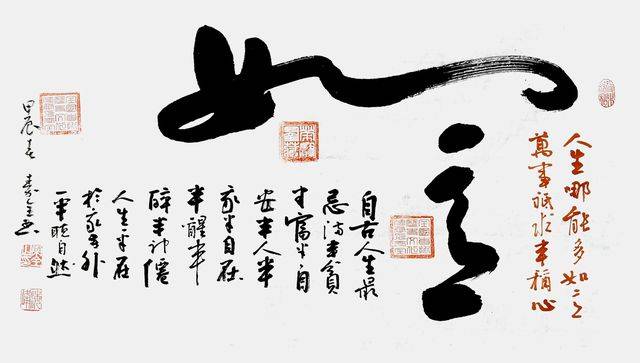 人生哪能多如意
萬事祇求半稱心
如意
自古人生最
忌满半貧
半富半自
安半人半
我半自在
半醒半
醉半神僊
人生半在
於我另外
一半聽自然
甲辰春